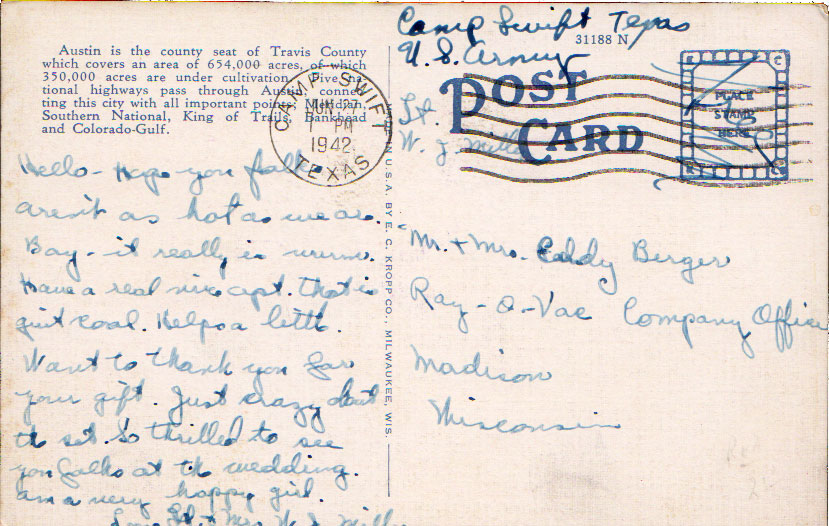 Austin is the county seat of Travis County
which covers an area of 654,000 acres, of which
350,000 acres are under cultivation. Five na-
tional highways pass through Austin, connec-
ting this city with all important points. Meridian,
Southern National, King of Trails, Bankhead
and Colorado-Gulf.
Camp Swift Texas
U.S. Army
31188 N
Lt.
W. J. Mills
POST
CARD
PLACE
STAMP
HERE
CAMP SWIFT
JUN 27
1 PM
1942
TEXAS
MADE IN U.S.A. BY E. C. KROPP CO., MILWAUKEE, WIS.
Hello - Hope you folks
aren't as hot as we are.
Boy - it really is warm.
Have a real nice apt. that is
quit cool. Helps a little.
Want to thank you for
your gift. Just crazy about
the set. So thrilled to see
you folks at the wedding.
am a very happy girl.
Lt. + Mrs. W. J. Mills
Mr. + Mrs. Eddy Berger
Ray-O-Vac Company Office
Madison
Wisconsin